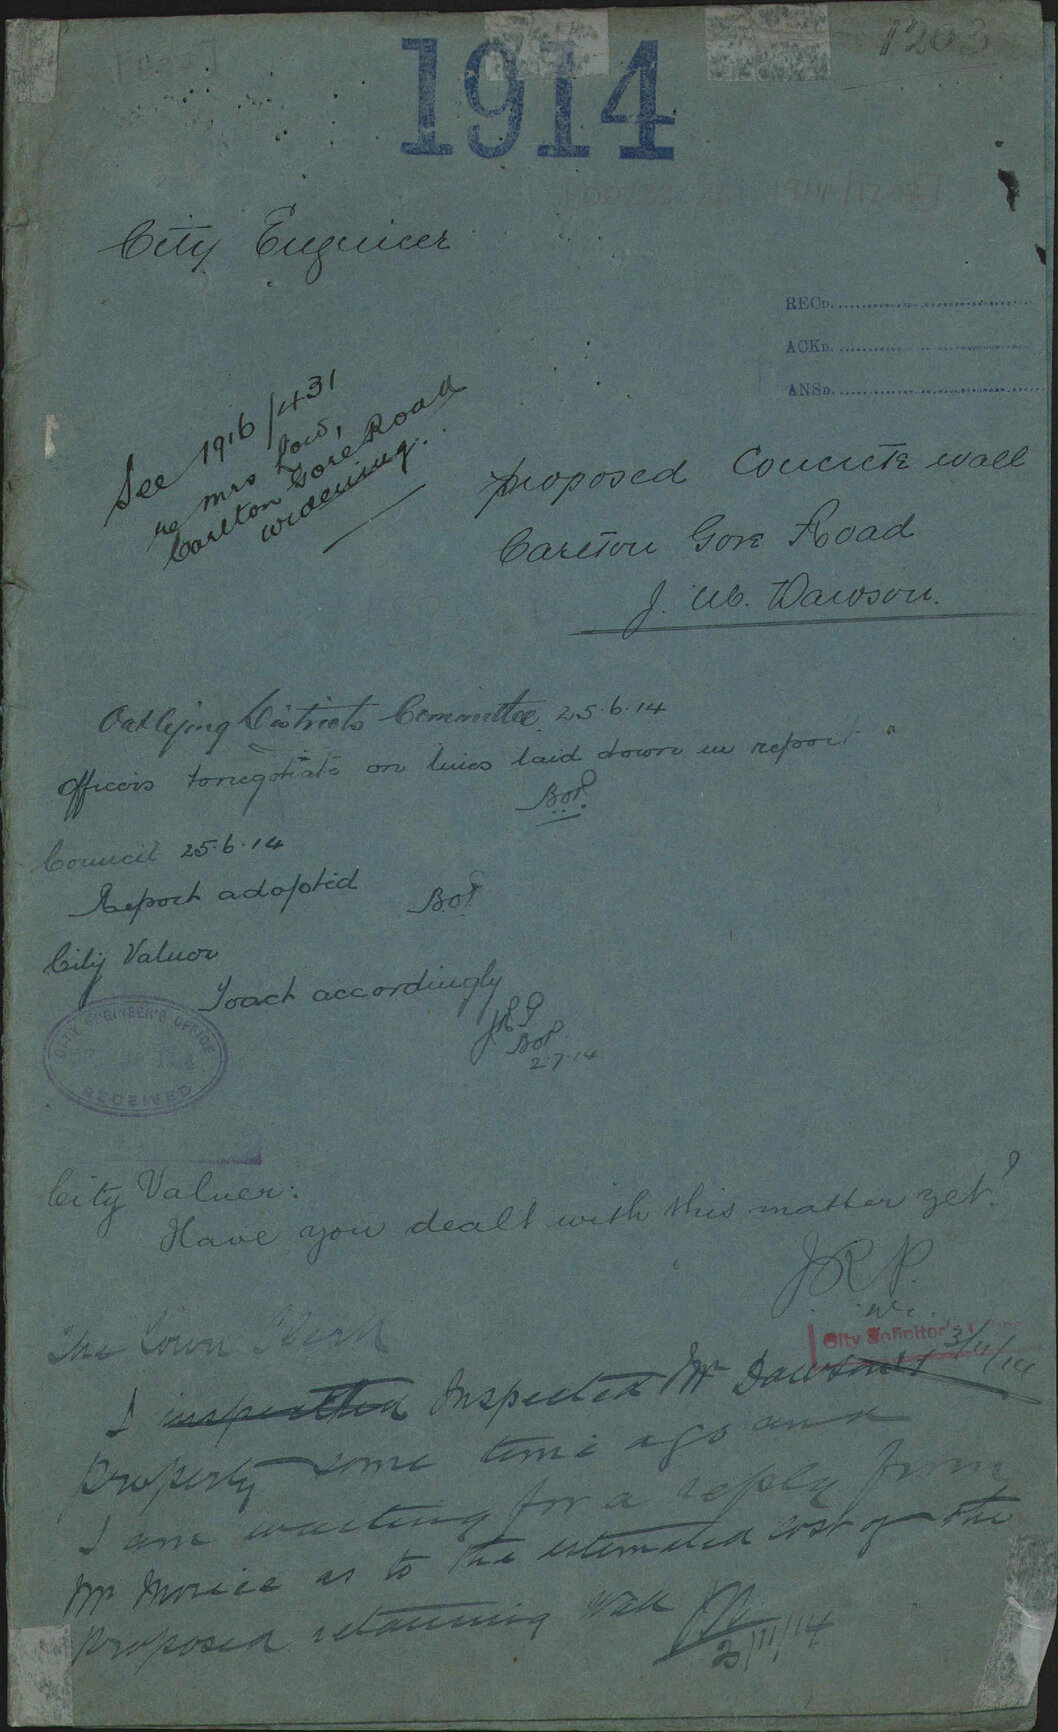 1203
1914
City Engineer
RECD.
ACKD.
ANSD.
See 1916/431
re Mrs Low,
Carlton Gore Road
widening.
proposed Concrete wall
Carlton Gore Road
J. W. Dawson.
Outlying Districts Committee 25.6.14
Officers to negotiate on lines laid down in report
Council 25.6.14
Report adopted
City Valuer
To act accordingly
2.7.14
CITY ENGINEER'S OFFICE
RECEIVED
City Valuer:
Have you dealt with this matter yet?
J.R.P.
City Solicitor's
3/11/14
The Town Clerk
I inspected Inspected Mr Dawson's
property some time ago and
I am waiting for a reply from
Mr Morice as to the estimated cost of the
proposed retaining wall
3/11/14